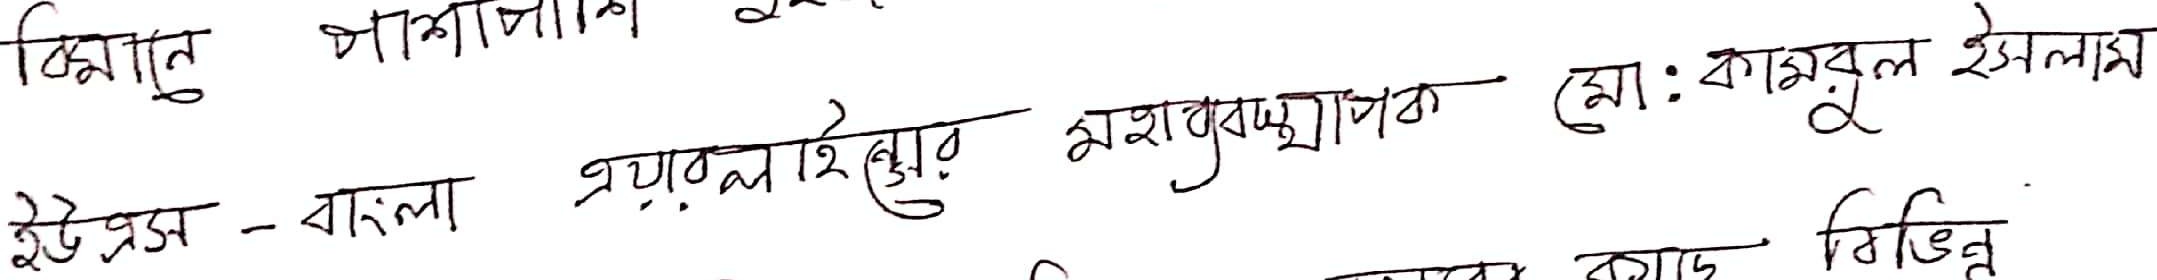 বিমান পাশাপাশি
ইউএস - বাংলা এয়ারলাইন্সের মহাব্যবস্থাপক মো: কামরুল ইসলাম
বিভিন্ন